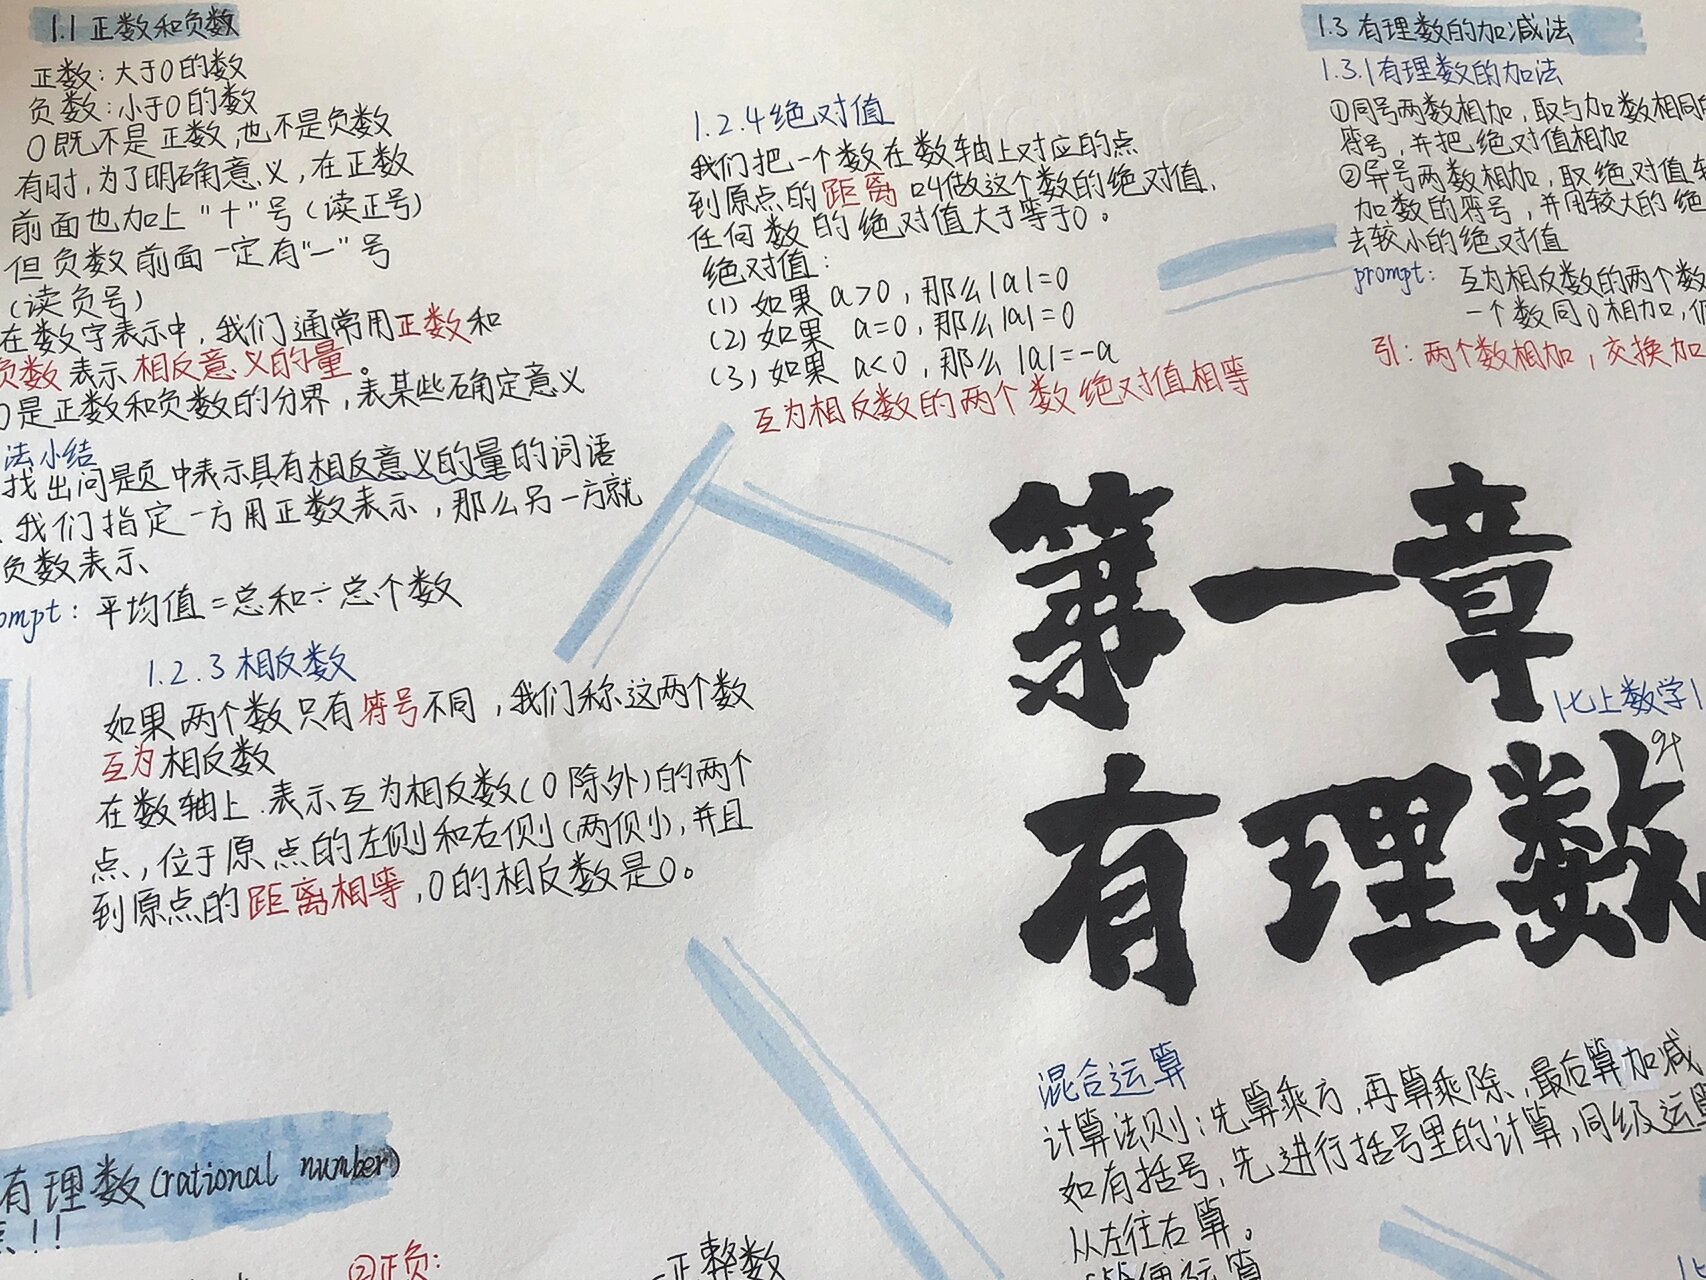 1.1 正数和负数
正数：大于0的数
负数：小于0的数
0既不是正数，也不是负数
有时，为了明确意义，在正数
前面也加上“+”号（读正号）
但负数前面一定有“一”号
（读负号）
在数字表示中，我们通常用正数和
负数表示相反意义的量。
0是正数和负数的分界，表某些确定意义
法小结
找出问题中表示具有相反意义的量的词语
我们指定一方用正数表示，那么另一方就
负数表示
ompt：平均值=总和÷总个数
1.2.3 相反数
如果两个数只有符号不同，我们称这两个数
互为相反数
在数轴上.表示互为相反数(0除外)的两个
点，位于原点的左侧和右侧(两侧)，并且
到原点的距离相等，0的相反数是0。
有理数(rational number)
!!
②正负：
1.2.4 绝对值
我们把一个数在数轴上对应的点
到原点的距离叫做这个数的绝对值.
任何数的绝对值大于等于0。
绝对值：
(1) 如果 a>0，那么|a|=0
(2) 如果 a=0，那么|a|=0
(3) 如果 a<0，那么|a|=-a
互为相反数的两个数绝对值相等
1.3 有理数的加减法
1.3.1 有理数的加法
①同号两数相加，取与加数相同的
符号，并把绝对值相加
②异号两数相加，取绝对值较
加数的符号，并用较大的绝
去较小的绝对值
prompt：互为相反数的两个数
一个数同0相加，仍
引：两个数相加，交换加
第一章
|七上数学|
有理数
混合运算
计算法则：先算乘方，再算乘除，最后算加减
如有括号，先进行括号里的计算，同级运算
从左往右算。
简便运算
正整数